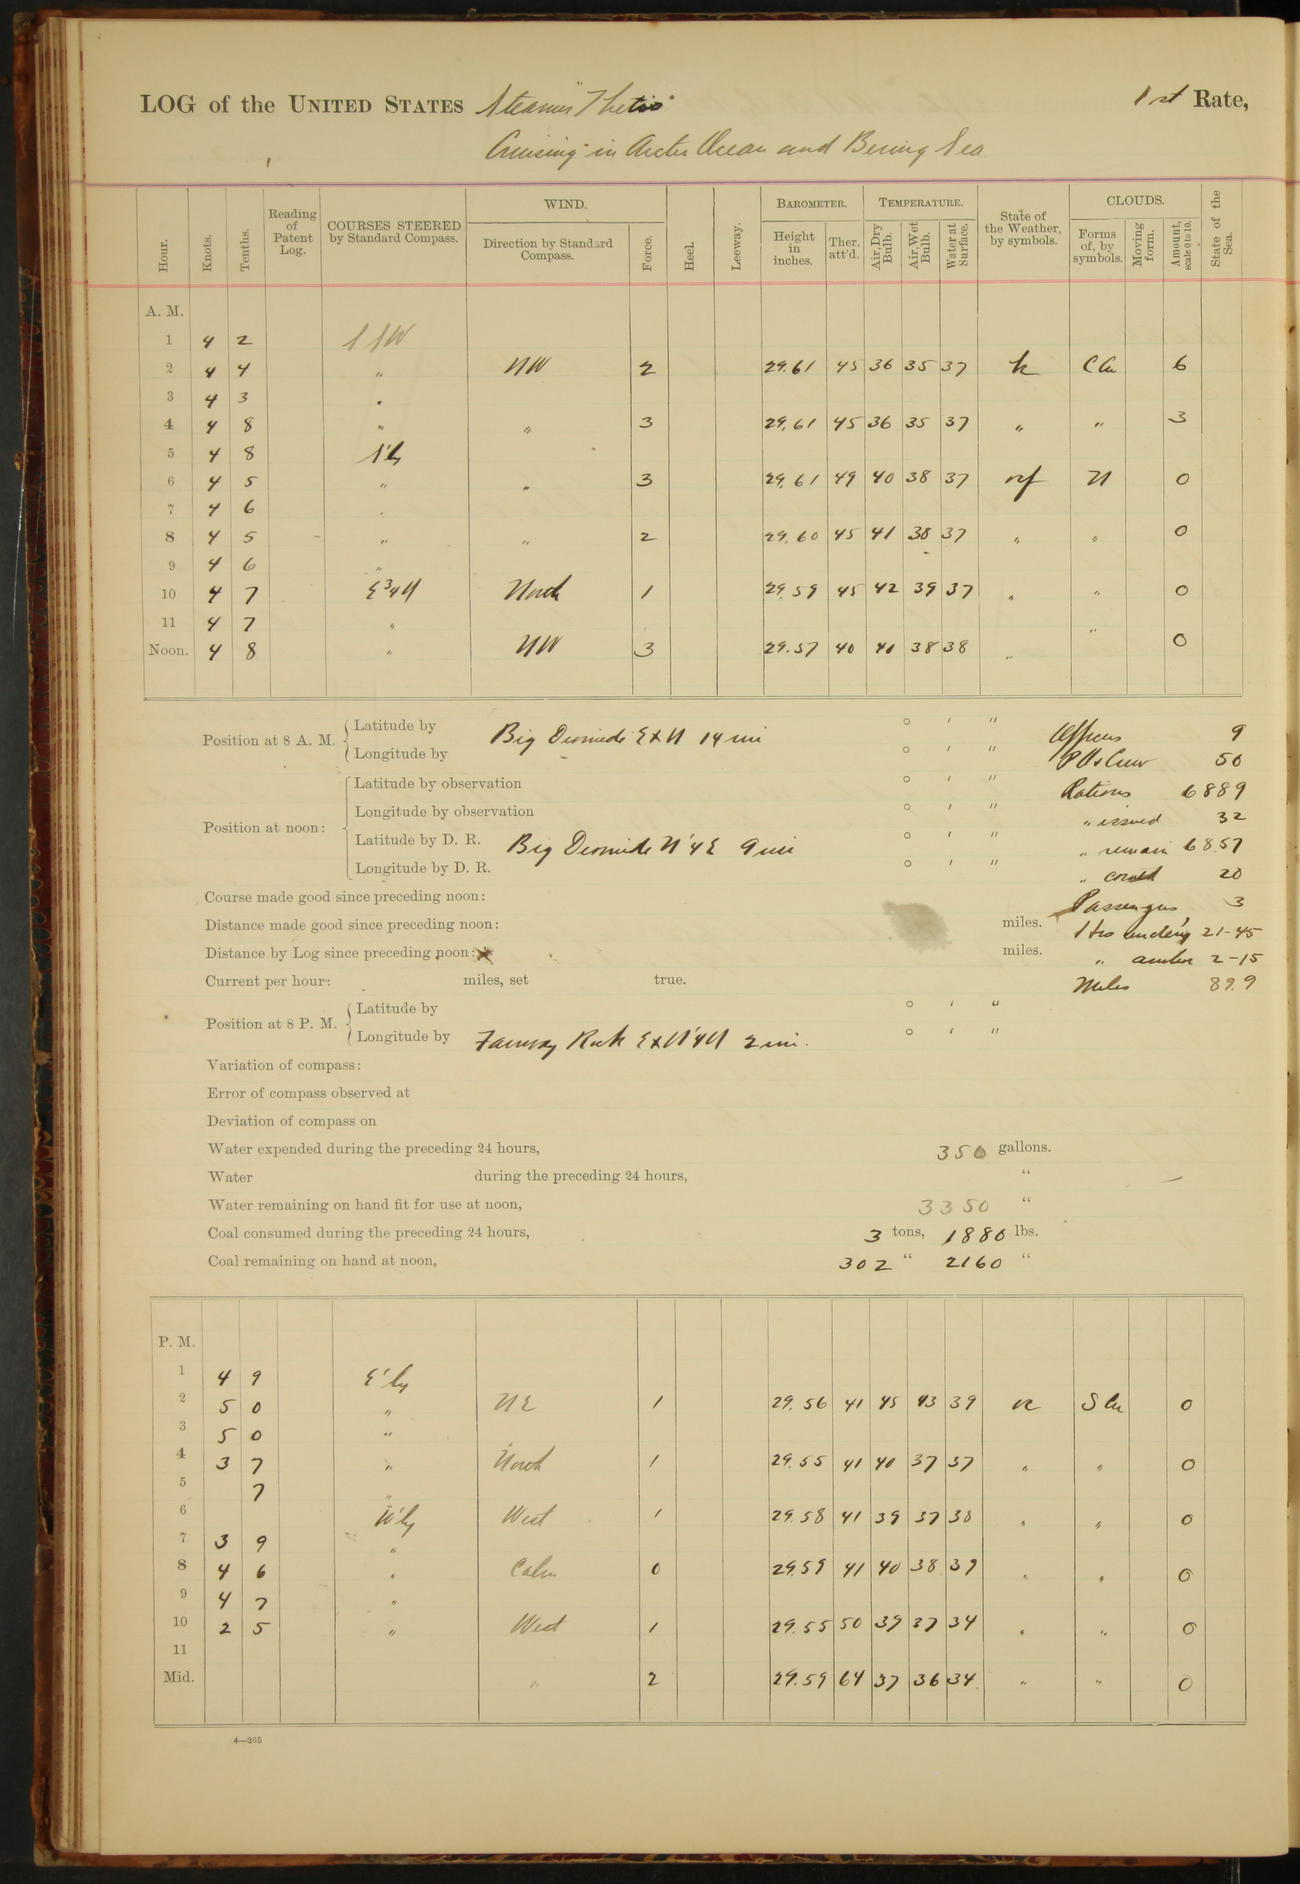 LOG of the UNITED STATES Steamer "Thetis" 1st Rate,
Cruising in Arctic Ocean and Bering Sea.
Hour. Knots. Tenths. Reading of Patent Log. COURSES STEERED by Standard Compass. WIND. Direction by Standard Compass. Force. Heel. Leeway. BAROMETER. Height in inches. Ther. att'd. TEMPERATURE. Air, Dry Bulb. Air, Wet Bulb. Water at Surface. State of the Weather, by symbols. CLOUDS. Forms of, by symbols. Moving form. Amount, scale 0 to 10. State of the Sea.
A. M.
1 4 2 SSW
2 4 4 " NW 2 29.61 45 36 35 37 C Cu 6
3 4 3 "
4 4 8 " " 3 29.61 45 36 35 37 " " 3
5 4 8 S'ly
6 4 5 " " 3 29.61 49 40 38 37 of N 0
7 4 6 "
8 4 5 " " 2 29.60 45 41 38 37 " " 0
9 4 6 "
10 4 7 E3/4N North 1 29.59 45 42 39 37 " " 0
11 4 7 " "
Noon. 4 8 " NW 3 29.57 40 41 38 38 " 0
Position at 8 A. M. Latitude by ° ' " Officers 9
Longitude by Big Diomede ExN 14 mi ° ' " P Os Crew 50
Position at noon: Latitude by observation ° ' " Rations 6889
Longitude by observation ° ' " " issued 32
Latitude by D. R. Big Diomede N'4E 9 mi ° ' " " remain 6857
Longitude by D. R. ° ' " " com'td 20
Course made good since preceding noon: Passengers 3
Distance made good since preceding noon: miles. Hrs under'y 21-45
Distance by Log since preceding noon: miles. " anchor 2-15
Current per hour: miles, set true. Miles 89.9
Position at 8 P. M. Latitude by ° ' "
Longitude by Fairway Rock ExN'4N 2 mi. ° ' "
Variation of compass:
Error of compass observed at
Deviation of compass on
Water expended during the preceding 24 hours, 350 gallons.
Water during the preceding 24 hours, "
Water remaining on hand fit for use at noon, 3350 "
Coal consumed during the preceding 24 hours, 3 tons, 1880 lbs.
Coal remaining on hand at noon, 302 " 2160 "
P. M.
1 4 9 E'ly
2 5 0 " NE 1 29.56 41 45 43 39 S Cu 0
3 5 0 "
4 3 7 " North 1 29.55 41 40 37 37 " " 0
5 7 "
6 W'ly West 1 29.58 41 39 37 38 " " 0
7 3 9 "
8 4 6 " Calm 0 29.59 41 40 38 37 " " 0
9 4 7 "
10 2 5 " West 1 29.55 50 39 37 34 " " 0
11
Mid. " 2 29.59 64 37 36 34 " " 0
4—265